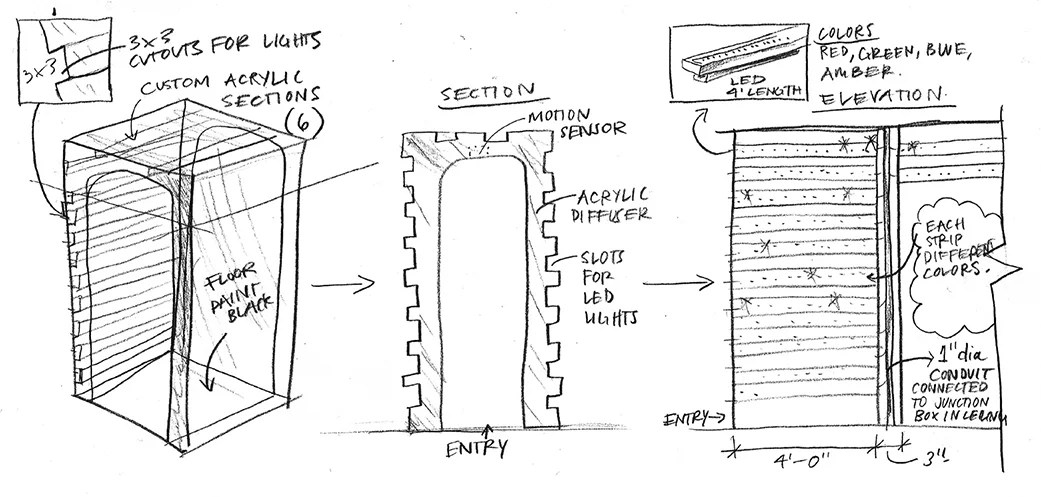 3x3
CUTOUTS FOR LIGHTS
3x3
CUSTOM ACRYLIC
SECTIONS
(6)
FLOOR
PAINT
BLACK
SECTION
MOTION
SENSOR
ACRYLIC
DIFFUSER
SLOTS
FOR
LED
LIGHTS
ENTRY
LED
4' LENGTH
COLORS
RED, GREEN, BLUE,
AMBER.
ELEVATION.
EACH
STRIP
DIFFERENT
COLORS.
1" dia
CONDUIT
CONNECTED
TO JUNCTION
BOX IN CEILING
ENTRY
4'-0"
3"